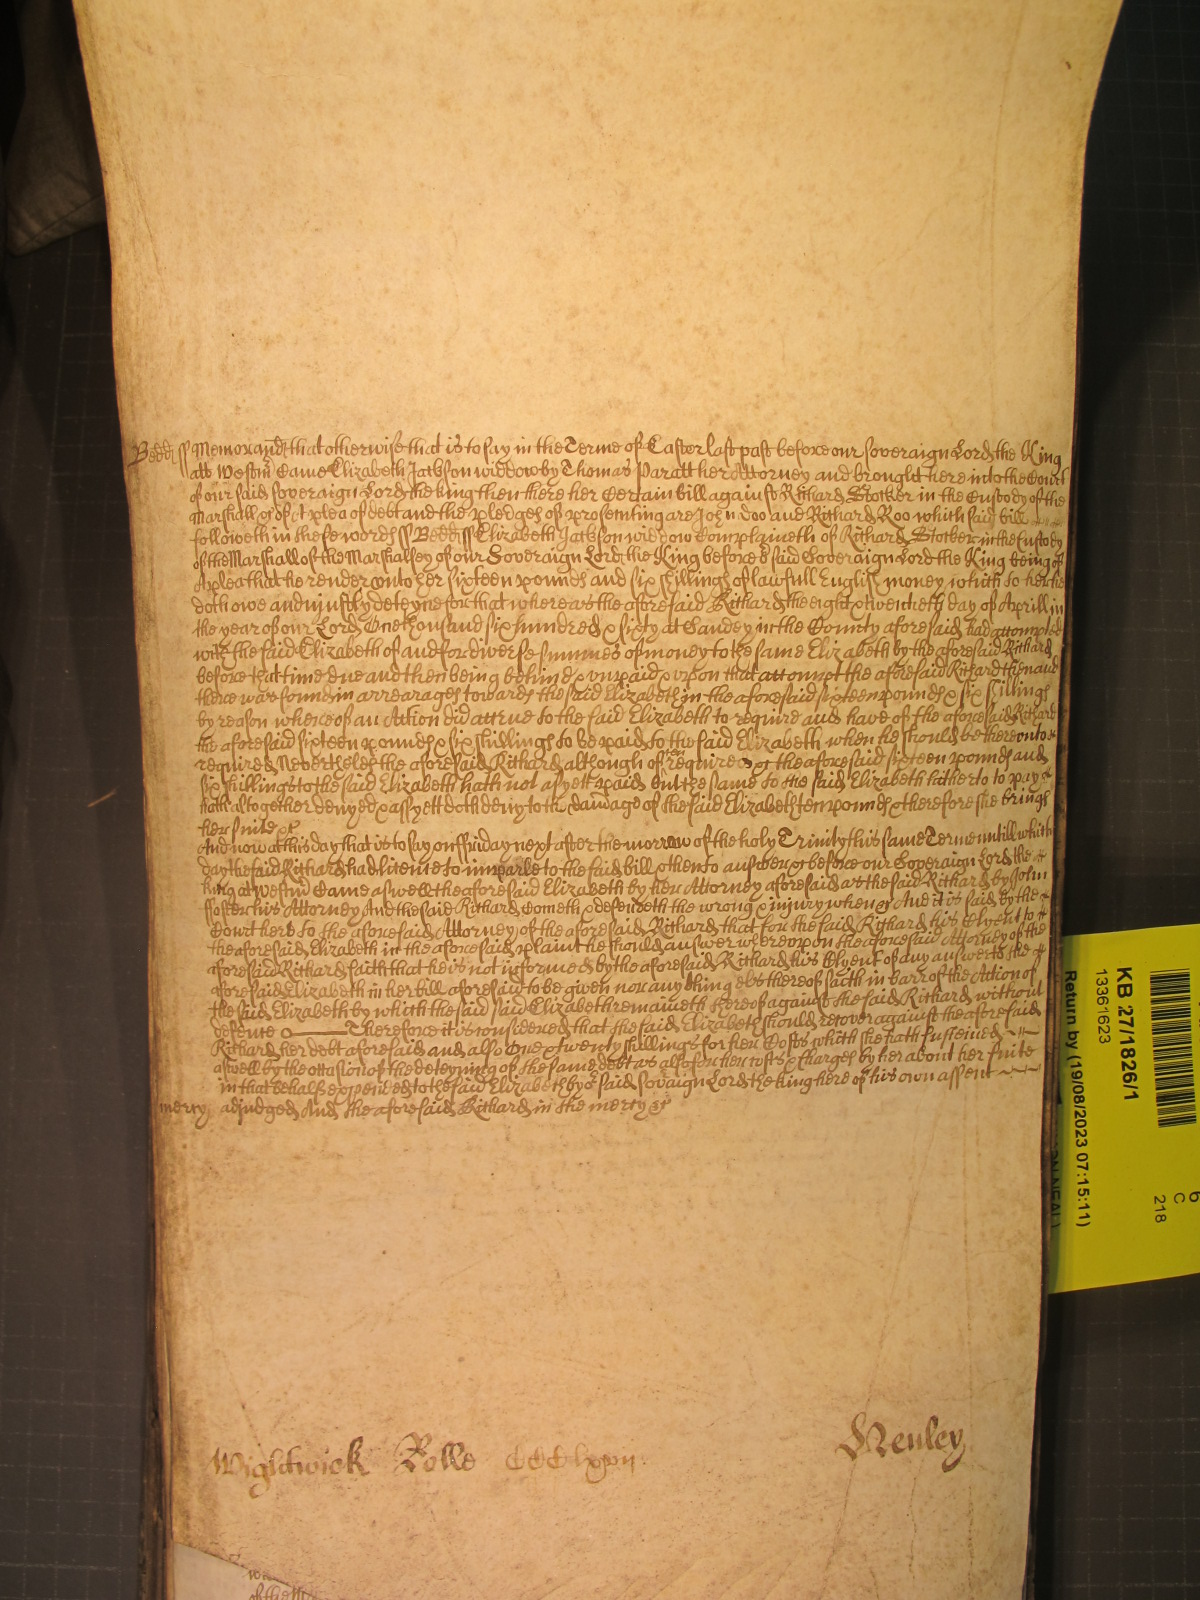 Bedd ss Memorand that otherwise that is to say in the Terme of Easter last past before our Soveraign Lord the King
att Westm Came Elizabeth Jackson widdow by Thomas Paratt her Attorney and brought here into the Court
of our said Soveraign Lord the King then there her Certain bill against Richard Stocker in the Custody of the
Marshall &c of A plea of debt and the pledges of prosecuting are John Doo and Richard Roo which said bill
followeth in these words ss Bedd ss Elizabeth Jackson widdow Complaineth of Richard Stocker in the Custody
of the Marshall of the Marshalsey of our Soveraign Lord the King before said Soveraign Lord the King being of
A plea that he render unto her sixteen pounds and six shillings of lawfull English money which to her he
doth owe and unjustly deteyne for that whereas the aforesaid Richard the eight & twentieth day of Aprill in
the year of our Lord One thousand six hundred & sixty at Sandey in the County aforesaid had attompted
with the said Elizabeth of and for diverse summes of money to the same Elizabeth by the aforesaid Richard
before that time due and then being behind & unpaid & upon that attompt the aforesaid Richard then and
there was found in arrearages towards the said Elizabeth in the aforesaid sixteen pounds & six shillings
by reason whereof an Action did accrue to the said Elizabeth to require and have of the aforesaid Richard
the aforesaid sixteen pounds & six shillings to be paid to the said Elizabeth when he should be thereunto
required Neverthelesse the aforesaid Richard although often required &c the aforesaid sixteen pounds and
six shillings to the said Elizabeth hath not as yett paid but the same to the said Elizabeth hitherto to pay
hath altogether denyed & as yett doth deny to the damage of the said Elizabeth ten pounds & therefore she brings
her suite &c
And now at this day that is to say on Friday next after the morrow of the holy Trinity this same Terme untill which
day the said Richard had licence to imparle to the said bill & then to answer &c before our Soveraign Lord the
King at Westm Came aswell the aforesaid Elizabeth by her Attorney aforesaid as the said Richard by John
Foster his Attorney And the said Richard Cometh & defendeth the wrong & injury when &c And it is said by the
Court here to the aforesaid Attorney of the aforesaid Richard that for the said Richard his Clyent to
the aforesaid Elizabeth in the aforesaid plaint he should answer whereupon the aforesaid Attorney of the
aforesaid Richard saith that he is not informed by the aforesaid Richard his Clyent of any answer to the
aforesaid Elizabeth in her bill aforesaid to be given nor any thing els thereof saith in barr of the Action of
the said Elizabeth by which the said said Elizabeth remaineth thereof against the said Richard without
defence Therefore it is considered that the said Elizabeth should recover against the aforesaid
Richard her debt aforesaid and also One & twenty shillings for her Costs which she hath susteined
aswell by the occasion of the deteyning of the same debt as also for her costs & charges by her about her suite
in that behalfe expended to the said Elizabeth by said Sovaign Lord the King here of his own assent
mercy adjudged And the aforesaid Richard in the mercy &c
Wightwick Rolle Henley
KB 27/1826/1
13361623
Return by (19/08/2023 07:15:11)
6
C
218